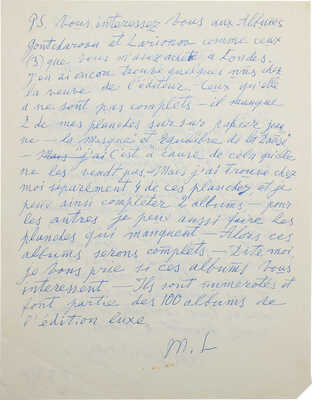 PS Vous interessez vous aux Albums
Gontcharova et Larionow comme ceux
(3) que vous m'avez acheté a Londes.
J'en ai encore trouvé quelques uns chez
la veuve de l'éditeur. Ceux qu'elle
a ne sont pas complets – il manque
2 de mes planches sur sur papier jau
ne – la masque et Equilibre de la
– Mais j'ai c'est à cause de cela qu'elle
ne les vendt pas. Mais j'ai trouvé chez
moi separement 4 de ces planches et je
peux ainsi completer 2 albums – pour
les autres je peux aussi faire les
planches qui manquent – Alors ces
albums serons complets – Dite moi
je vous prie si ces albums vous
interessent – Ils sont numerotés et
font partie des 100 albums de
l'édition luxe
M. L